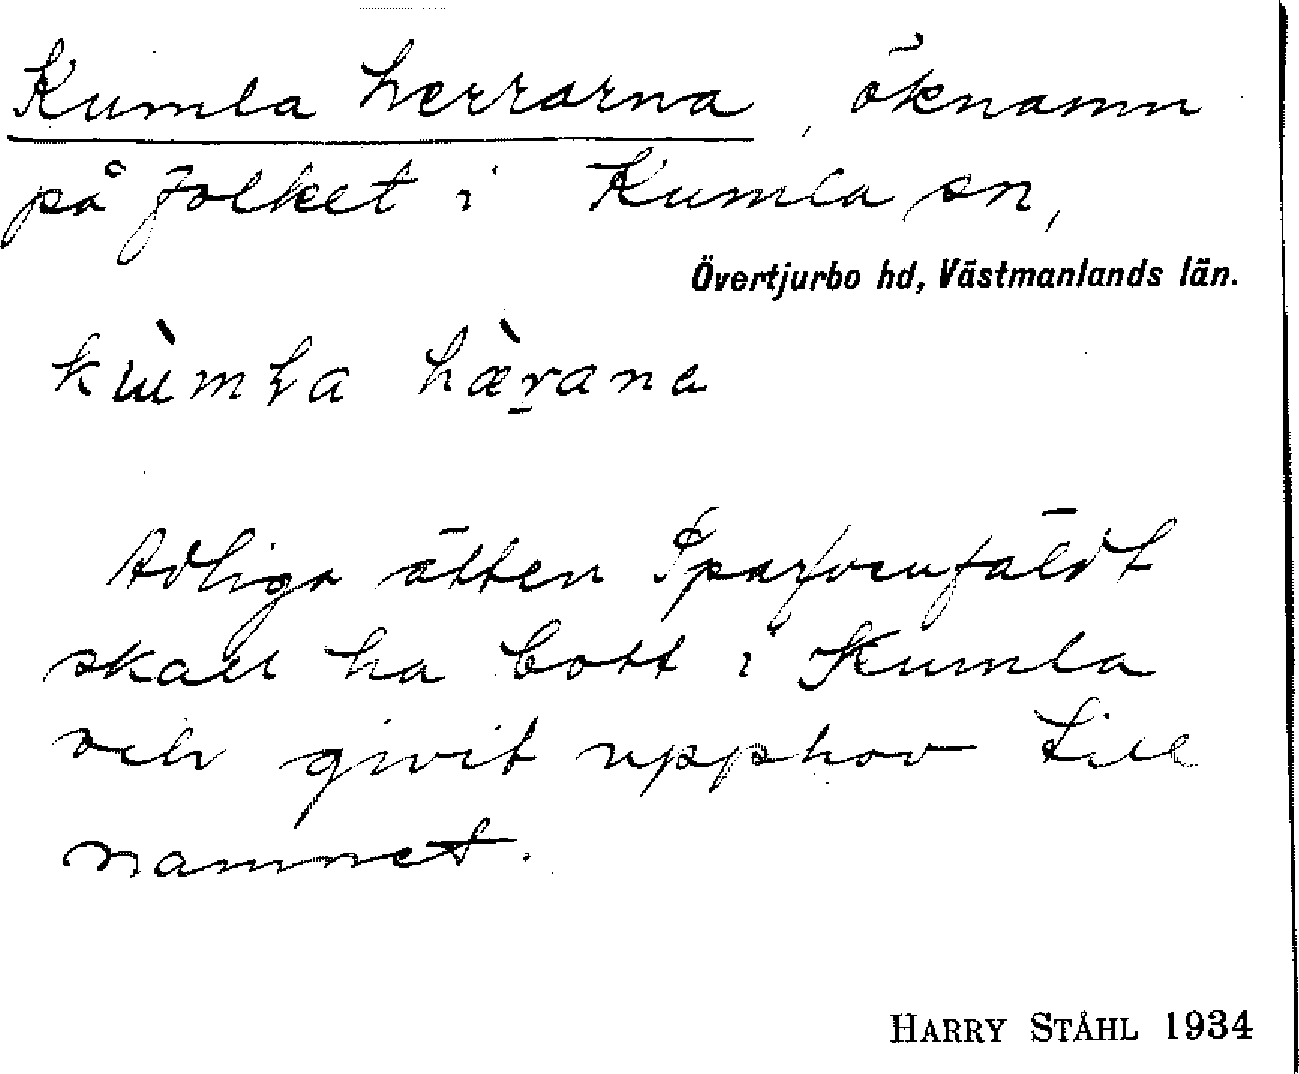 Kumla herrarna, öknamn
på folket i Kumla sn,
Övertjurbo hd, Västmanlands län.
kùmla hæ̀rana
Adliga ätten
skall ha bott i Kumla
och givit upphov till
namnet.
HARRY STÅHL 1934